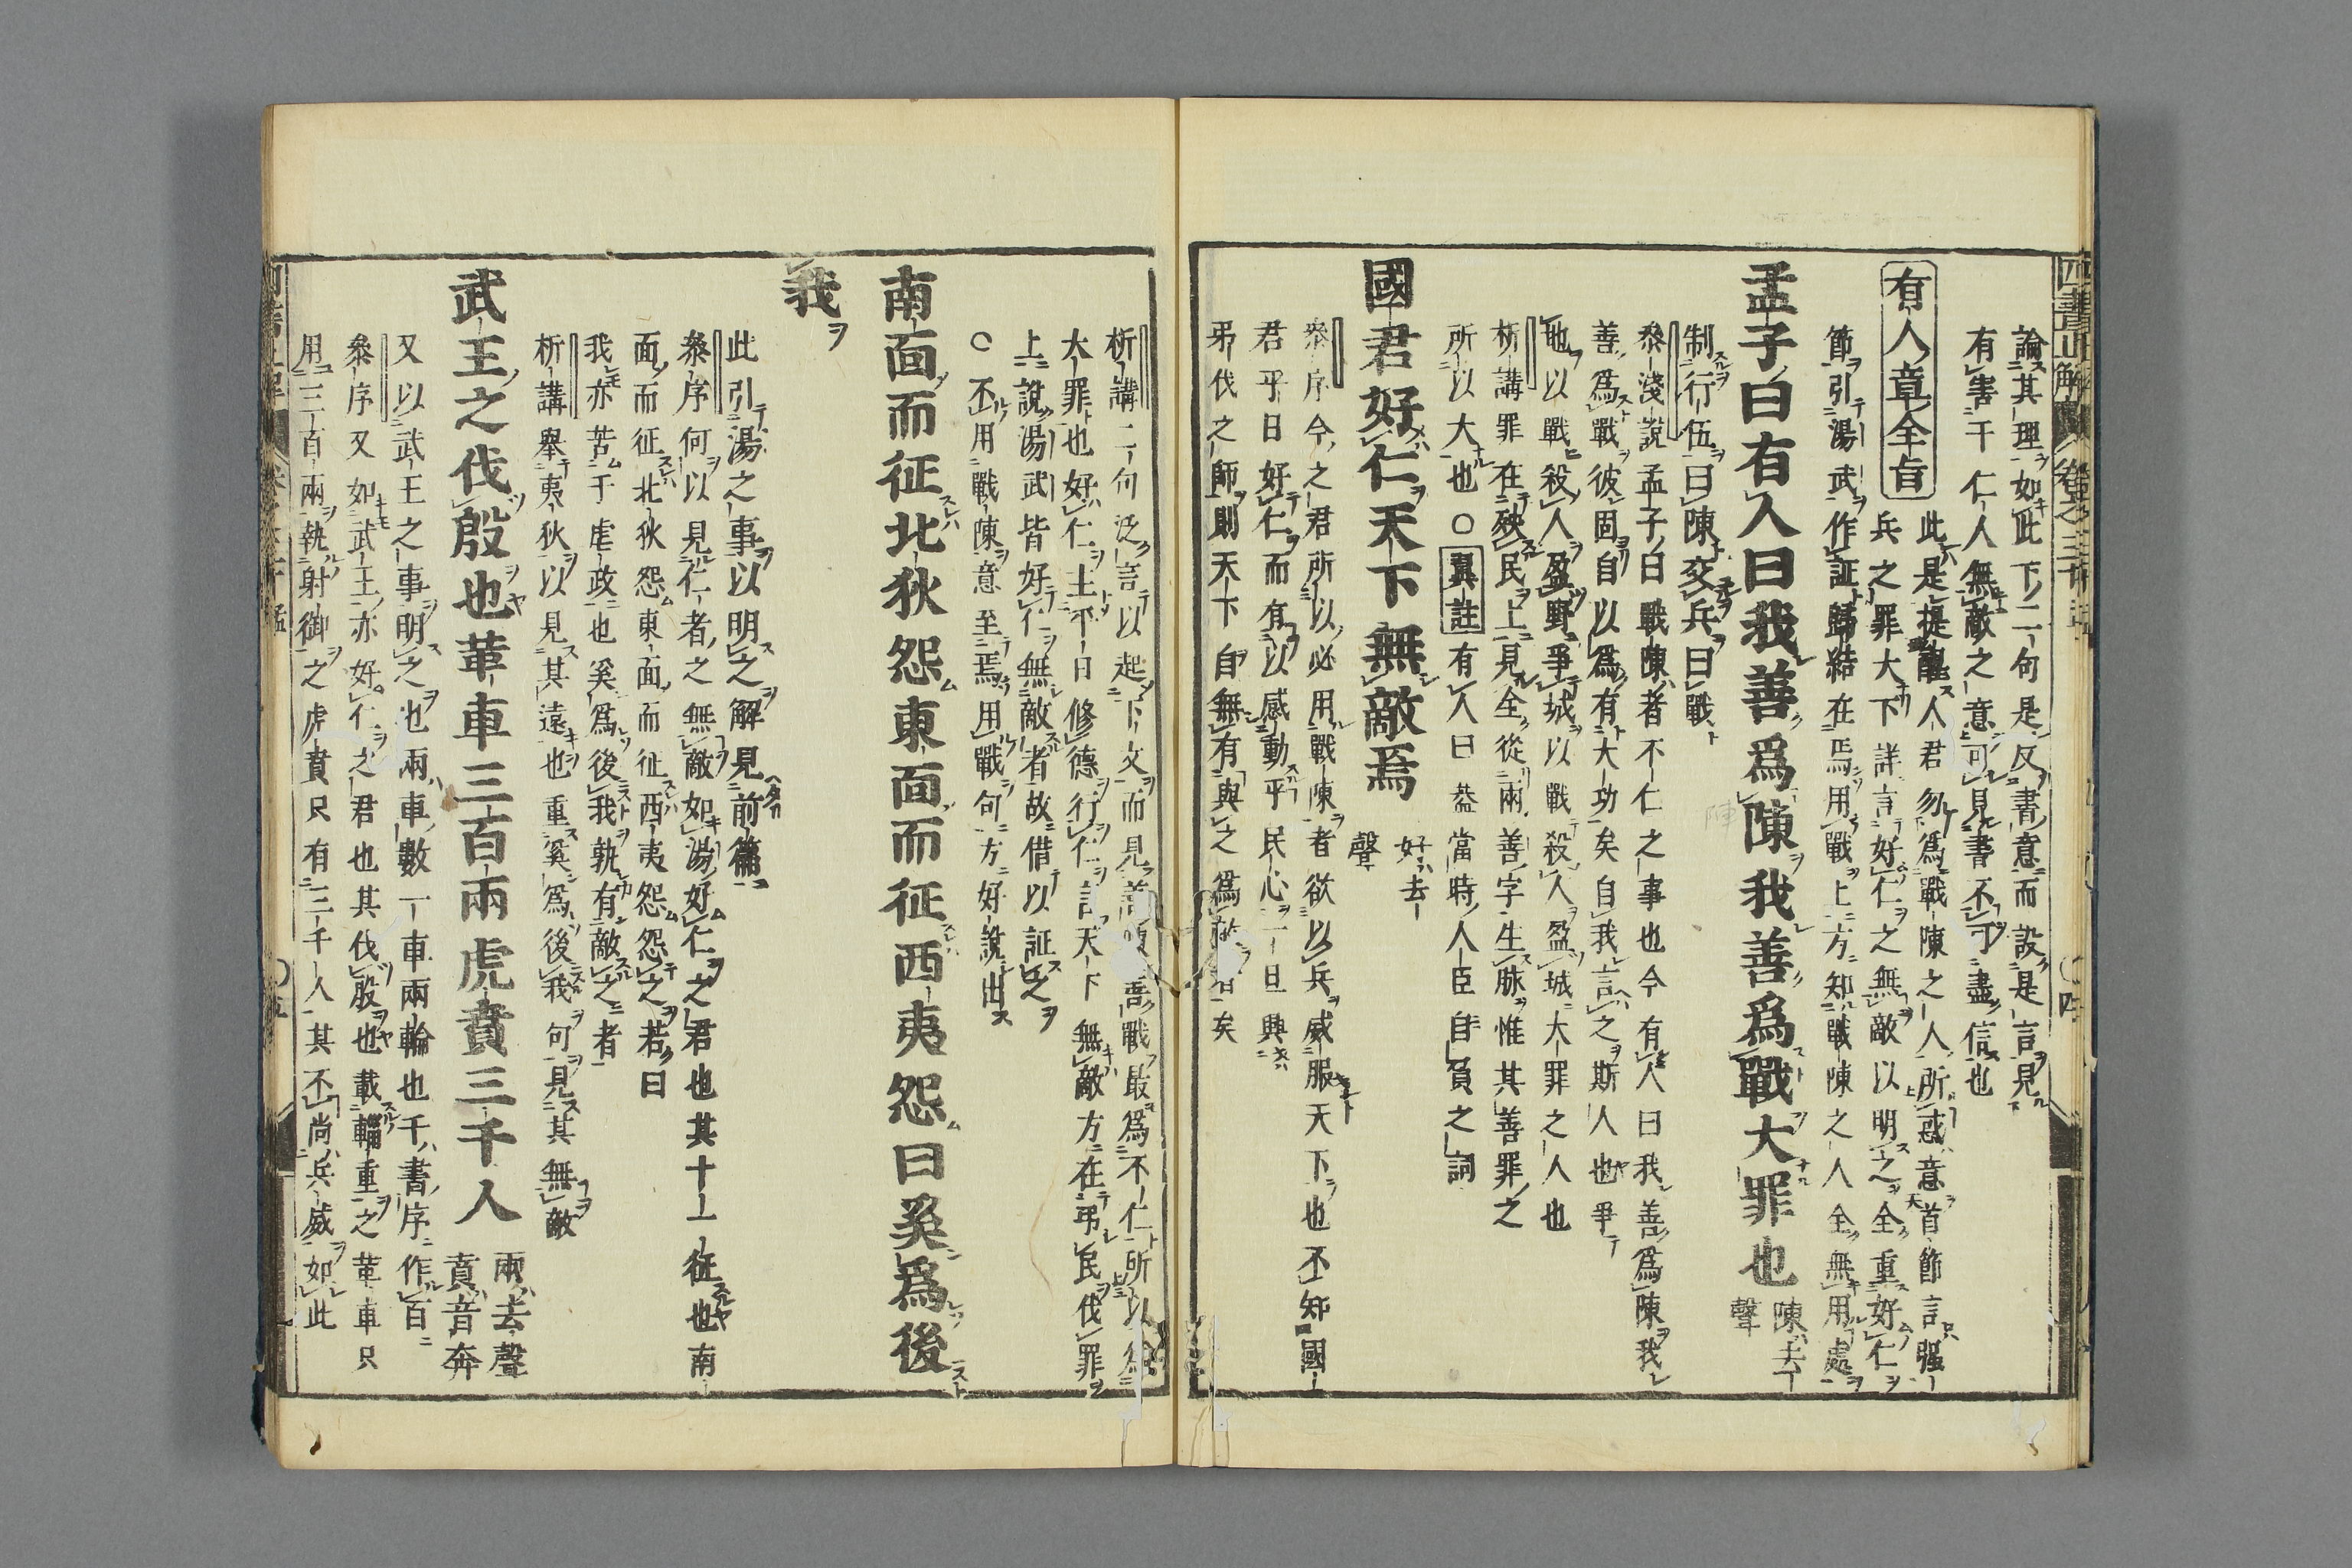 四書正解
卷之三十五
論其理如此下二句是反書意而設是言見
有害于仁人無敵之意可見書不可盡信也
有人章全旨
此是提醒人君勿爲戰陳之人所惑意首節言强
兵之罪大下詳言好仁之無敵以明之全重好仁
節引湯武作証歸結在焉用戰上方知戰陳之人全無用處
孟子曰有人曰我善爲陳我善爲戰大罪也
陳去
聲
制行伍曰陳交兵曰戰
叅淺說孟子曰戰陳者不仁之事也今有人曰我善爲陳我
善爲戰彼固自以爲有大功矣自我言之斯人也爭
地以戰殺人盈野爭城以戰殺人盈城大罪之人也
析講罪在殃民上見全從兩善字生脉惟其善罪之
所以大也○翼註有人曰葢當時人臣自負之詞
國君好仁天下無敵焉
好去
聲
叅序今之君所以必用戰陳者欲以兵威服天下也不知國
君平日好仁而有以感動乎民心一旦興
弔伐之師則天下自無有與之爲敵者矣
析講二句泛言以起下文而見善陳善戰最爲不仁所以爲
大罪也好仁土平日修德行仁言天下無敵方在弔民伐罪
上說湯武皆好仁無敵者故借以証之
○不用戰陳意至焉用戰句方好說出
南面而征北狄怨東面而征西夷怨曰奚爲後
我
此引湯之事以明之解見前篇
叅序何以見仁者之無敵如湯好仁之君也其十一征也南
面而征北狄怨東面而征西夷怨怨之若曰
我亦苦于虐政也奚爲後我孰有敵之者
析講舉夷狄以見其遠也重奚爲後我句見其無敵
武王之伐殷也革車三百兩虎賁三千人
兩去聲
賁音奔
又以武王之事明之也兩車數一車兩輪也千書序作百
叅序又如武王亦好仁之君也其伐殷也載輜重之革車只
用三百兩執射御之虎賁只有三千人其不尚兵威如此